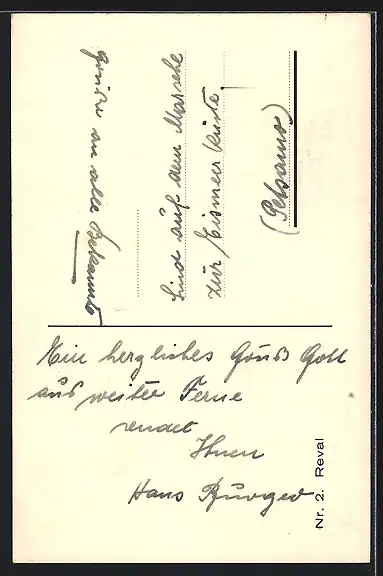 Ein herzliches Grüß Gott
aus weiter Ferne
sendet
Ihnen
Hans Burger
Grüße an alle Bekannte
Sind auf dem Marsche
zur Eismeer Küste
(Petsamo)
Nr. 2. Reval